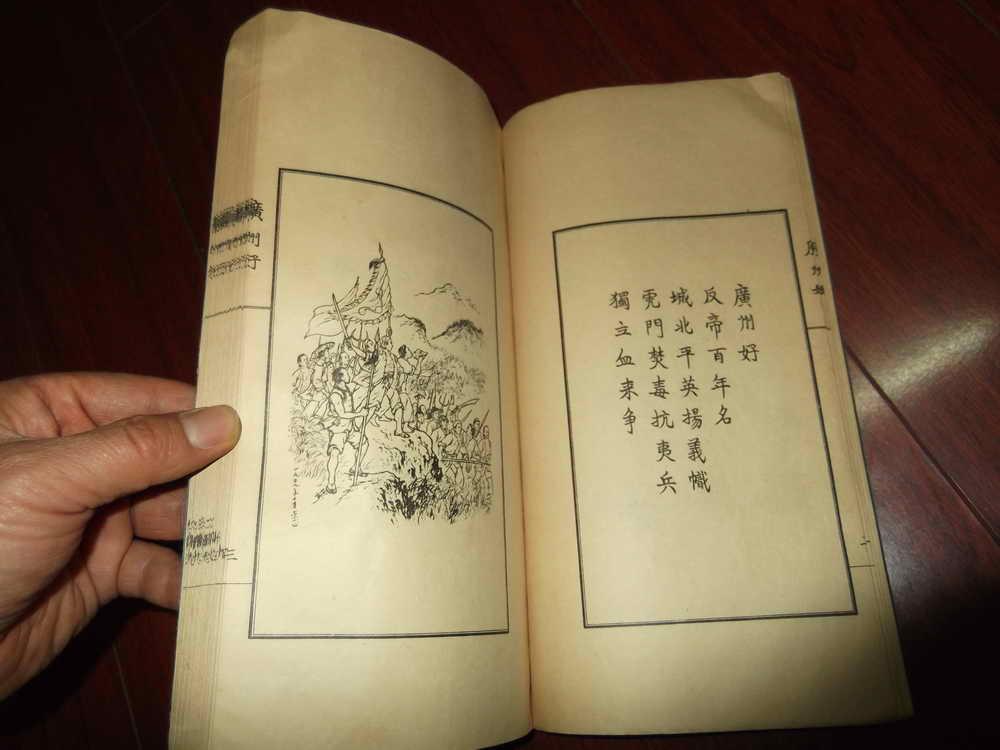 廣州好
反帝百年名
城北平英揚義幟
虎門焚毒抗夷兵
獨立血来争
廣州好